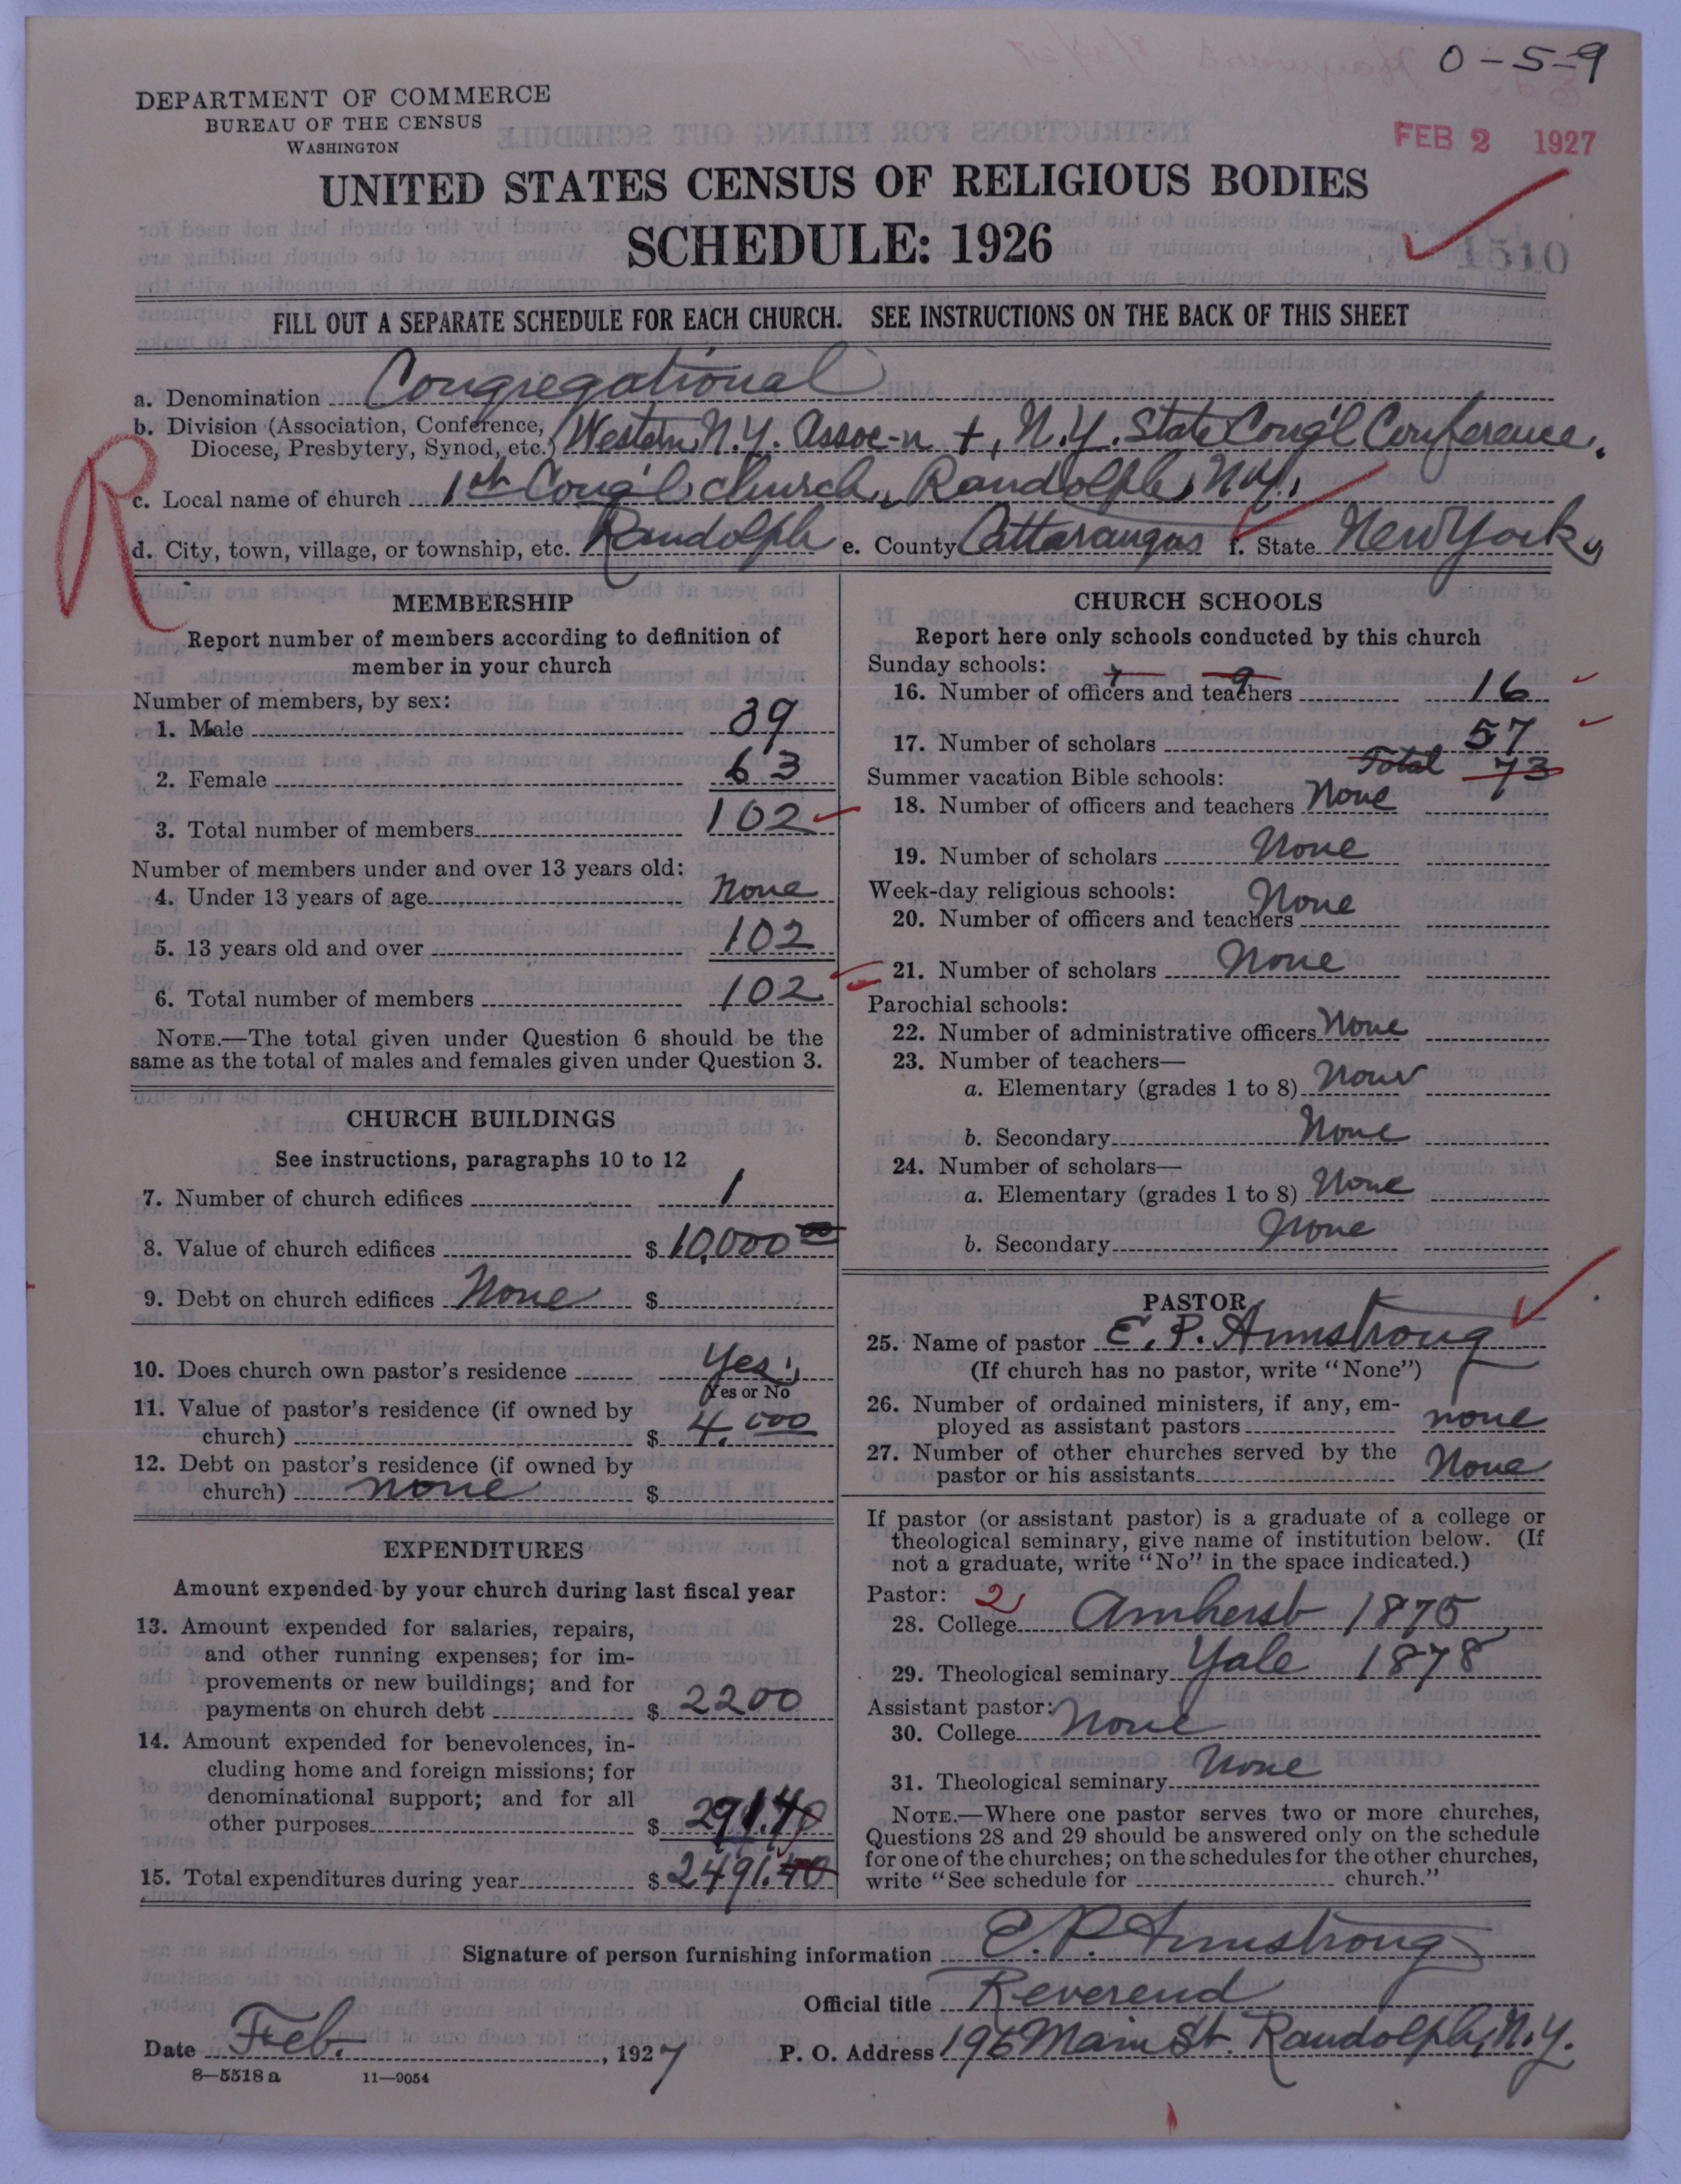 0-5-9
DEPARTMENT OF COMMERCE
BUREAU OF THE CENSUS
WASHINGTON
FEB 2 1927
UNITED STATES CENSUS OF RELIGIOUS BODIES
SCHEDULE: 1926
1510
FILL OUT A SEPARATE SCHEDULE FOR EACH CHURCH. SEE INSTRUCTIONS ON THE BACK OF THIS SHEET
R
a. Denomination Congregational
b. Division (Association, Conference,
Diocese, Presbytery, Synod, etc.) Western N.Y. Assoc-n +, N.Y. State Cong'l Conference.
c. Local name of church 1st Cong'l church, Randolph, N.Y.
d. City, town, village, or township, etc. Randolph e. County Cattaraugus f. State New York
MEMBERSHIP
Report number of members according to definition of
member in your church
Number of members, by sex:
1. Male 39
2. Female 63
3. Total number of members 102
Number of members under and over 13 years old:
4. Under 13 years of age none
5. 13 years old and over 102
6. Total number of members 102
NOTE.—The total given under Question 6 should be the
same as the total of males and females given under Question 3.
CHURCH BUILDINGS
See instructions, paragraphs 10 to 12
7. Number of church edifices 1
8. Value of church edifices $ 10,000 00
9. Debt on church edifices None $
10. Does church own pastor's residence Yes
Yes or No
11. Value of pastor's residence (if owned by
church) $ 4.000
12. Debt on pastor's residence (if owned by
church) none $
EXPENDITURES
Amount expended by your church during last fiscal year
13. Amount expended for salaries, repairs,
and other running expenses; for im-
provements or new buildings; and for
payments on church debt $ 2200
14. Amount expended for benevolences, in-
cluding home and foreign missions; for
denominational support; and for all
other purposes $ 291.40
15. Total expenditures during year $ 2491.40
CHURCH SCHOOLS
Report here only schools conducted by this church
Sunday schools: 7 9
16. Number of officers and teachers 16
17. Number of scholars 57
Total 73
Summer vacation Bible schools:
18. Number of officers and teachers None
19. Number of scholars None
Week-day religious schools:
20. Number of officers and teachers None
21. Number of scholars None
Parochial schools:
22. Number of administrative officers None
23. Number of teachers—
a. Elementary (grades 1 to 8) None
b. Secondary None
24. Number of scholars—
a. Elementary (grades 1 to 8) None
b. Secondary None
PASTOR
25. Name of pastor E. P. Armstrong
(If church has no pastor, write "None")
26. Number of ordained ministers, if any, em-
ployed as assistant pastors none
27. Number of other churches served by the
pastor or his assistants None
If pastor (or assistant pastor) is a graduate of a college or
theological seminary, give name of institution below. (If
not a graduate, write "No" in the space indicated.)
Pastor: 2
28. College Amherst 1875
29. Theological seminary Yale 1878
Assistant pastor:
30. College None
31. Theological seminary None
NOTE.—Where one pastor serves two or more churches,
Questions 28 and 29 should be answered only on the schedule
for one of the churches; on the schedules for the other churches,
write "See schedule for church."
Signature of person furnishing information E. P. Armstrong
Official title Reverend
Date Feb. , 1927 P. O. Address 196 Main St. Randolph, N.Y.
8—5518 a 11—9054